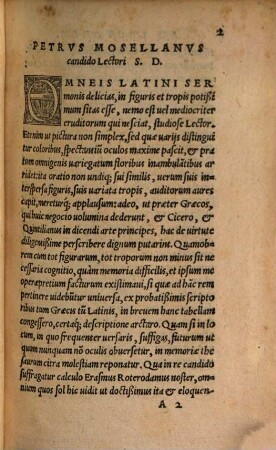 2
PETRVS MOSELLANVS
candido Lectori S. D.
OMNEIS LATINI SER
monis delicias, in figuris et tropis potissi
mum sitas esse, nemo est uel mediocriter
eruditorum qui nesciat, studiose Lector,
Et enim ut pictura non simplex, sed quæ uarijs distingui
tur coloribus, spectantiũ oculos maxime pascit, & pra
tum omnigenis uariegatum floribus inambulãtibus ar
ridet: ita oratio non undiq; sui similis, uerum suis in-
terspersa figuris, suis uariata tropis, auditorum aures
capit, mereturq; applausum: adeo, ut præter Græcos,
qui huic negocio uolumina dederunt, & Cicero, &
Quntilianus in dicendi arte principes, hac de uirtute
diligẽtissime perscribere dignum putarint. Quamob-
rem cum tot figurarum, tot troporum non minus sit ne
cessaria cognitio, quàm memoria difficilis, et ipsum me
operæpretium facturum existimaui, si quæ ad hãc rem
pertinere uidebãtur uniuersa, ex probatissimis scripto
ribus tam Græcis tũ Latinis, in breuem hanc tabellam
congessero, certaq; descriptione arctaro. Quam si in lo
cum, in quo frequenter uersaris, suffigas, futurum ut
quum nunquam nõ oculis obuersetur, in memoriæ the
saurum citra molestiam reponatur. Quam in re candido
suffragatur calculo Erasmus Roterodamus noster, om-
nium quos sol hic uidit ut doctissimus ita & eloquen-
A 2